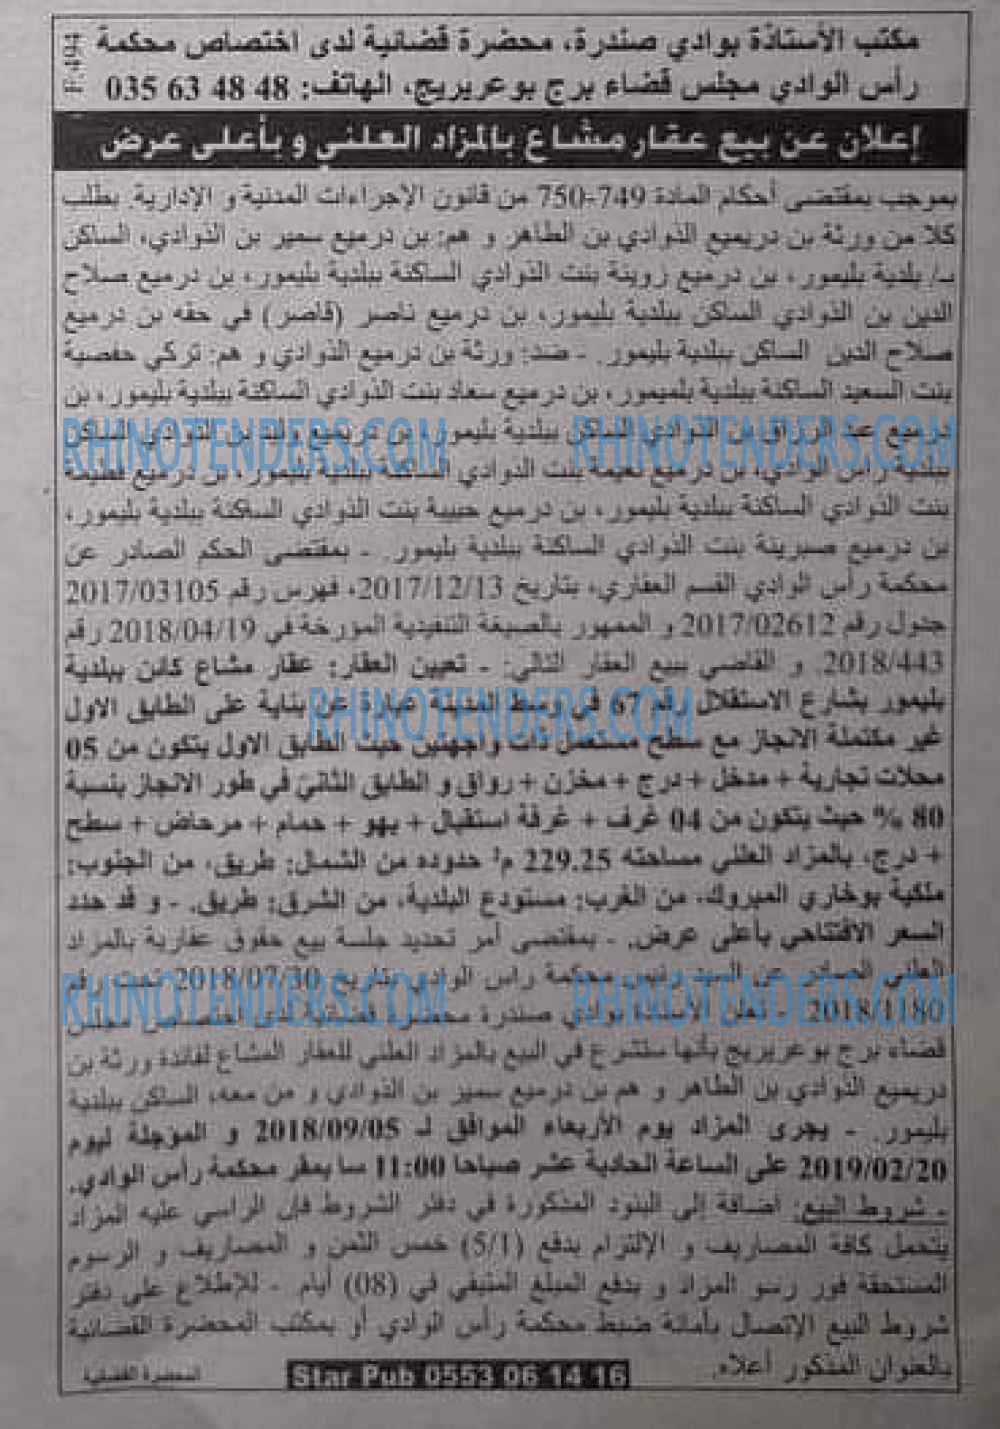 F.494
مكتب الأستاذة بوادي صندرة، محضرة قضائية لدى اختصاص محكمة
رأس الوادي مجلس قضاء برج بوعريريج، الهاتف: 48 48 63 035
إعلان عن بيع عقار مشاع بالمزاد العلني و بأعلى عرض
بموجب بمقتضى أحكام المادة 749-750 من قانون الإجراءات المدنية و الإدارية. بطلب
كلا من ورثة بن دريميع الذوادي بن الطاهر و هم: بن درميع سمير بن الذوادي، الساكن
بـ/ بلدية بليمور، بن درميع زوينة بنت الذوادي الساكنة ببلدية بليمور، بن درميع صلاح
الدين بن الذوادي الساكن ببلدية بليمور، بن درميع ناصر (قاصر) في حقه بن درميع
صلاح الدين الساكن ببلدية بليمور. - ضد: ورثة بن درميع الذوادي و هم: تركي حفصية
بنت السعيد الساكنة ببلدية بلميمور، بن درميع سعاد بنت الذوادي الساكنة ببلدية بليمور، بن
درميع عبد الرزاق بن الذوادي الساكن ببلدية بليمور، بن درميع وليد بن الذوادي الساكن
ببلدية راس الوادي، بن درميع نعيمة بنت الذوادي الساكنة ببلدية بليمور، بن درميع فطيمة
بنت الذوادي الساكنة ببلدية بليمور، بن درميع حبيبة بنت الذوادي الساكنة ببلدية بليمور،
بن درميع صبرينة بنت الذوادي الساكنة ببلدية بليمور. - بمقتضى الحكم الصادر عن
محكمة رأس الوادي القسم العقاري، بتاريخ 2017/12/13، فهرس رقم 2017/03105
جدول رقم 2017/02612 و الممهور بالصيغة التنفيذية المؤرخة في 2018/04/19 رقم
2018/443. و القاضي ببيع العقار التالي: - تعيين العقار: عقار مشاع كائن ببلدية
بليمور بشارع الاستقلال رقم 67 في وسط المدينة عبارة عن بناية على الطابق الاول
غير مكتملة الانجاز مع سطح مستعمل ذات واجهتين حيث الطابق الاول يتكون من 05
محلات تجارية + مدخل + درج + مخزن + رواق و الطابق الثاني في طور الانجاز بنسبة
80 % حيث يتكون من 04 غرف + غرفة استقبال + بهو + حمام + مرحاض + سطح
+ درج، بالمزاد العلني مساحته 229.25 م² حدوده من الشمال: طريق، من الجنوب:
ملكية بوخاري المبروك، من الغرب: مستودع البلدية، من الشرق: طريق. - و قد حدد
السعر الافتتاحي بأعلى عرض. - بمقتضى أمر تحديد جلسة بيع حقوق عقارية بالمزاد
العلني الصادر عن السيد رئيس محكمة راس الوادي بتاريخ 2018/07/30 تحت رقم
2018/1180 - تعلن الأستاذة بوادي صندرة محضرة قضائية لدى اختصاص مجلس
قضاء برج بوعريريج بأنها ستشرع في البيع بالمزاد العلني للعقار المشاع لفائدة ورثة بن
دريميع الذوادي بن الطاهر و هم بن درميع سمير بن الذوادي و من معه، الساكن ببلدية
بليمور. - يجرى المزاد يوم الأربعاء الموافق لـ 2018/09/05 و المؤجلة ليوم
2019/02/20 على الساعة الحادية عشر صباحا 11:00 سا بمقر محكمة رأس الوادي.
- شروط البيع: اضافة إلى البنود المذكورة في دفتر الشروط فإن الراسي عليه المزاد
يتحمل كافة المصاريف و الإلتزام بدفع (5/1) خمس الثمن و المصاريف و الرسوم
المستحقة فور رسو المزاد و يدفع المبلغ المتبقي في (08) أيام. - للإطلاع على دفتر
شروط البيع الإتصال بأمانة ضبط محكمة رأس الوادي أو بمكتب المحضرة القضائية
بالعنوان المذكور أعلاه.
Star Pub 0553 06 14 16
المحضرة القضائية
RHINOTENDERS.COM
RHINOTENDERS.COM
RHINOTENDERS.COM
RHINOTENDERS.COM
RHINOTENDERS.COM